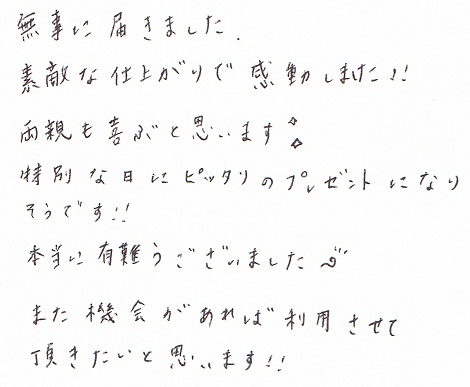 無事に届きました.
素敵な仕上がりで感動しました!!
両親も喜ぶと思います
特別な日にピッタリのプレゼントになり
そうです!!
本当に有難うございました
また機会があれば利用させて
頂きたいと思います!!